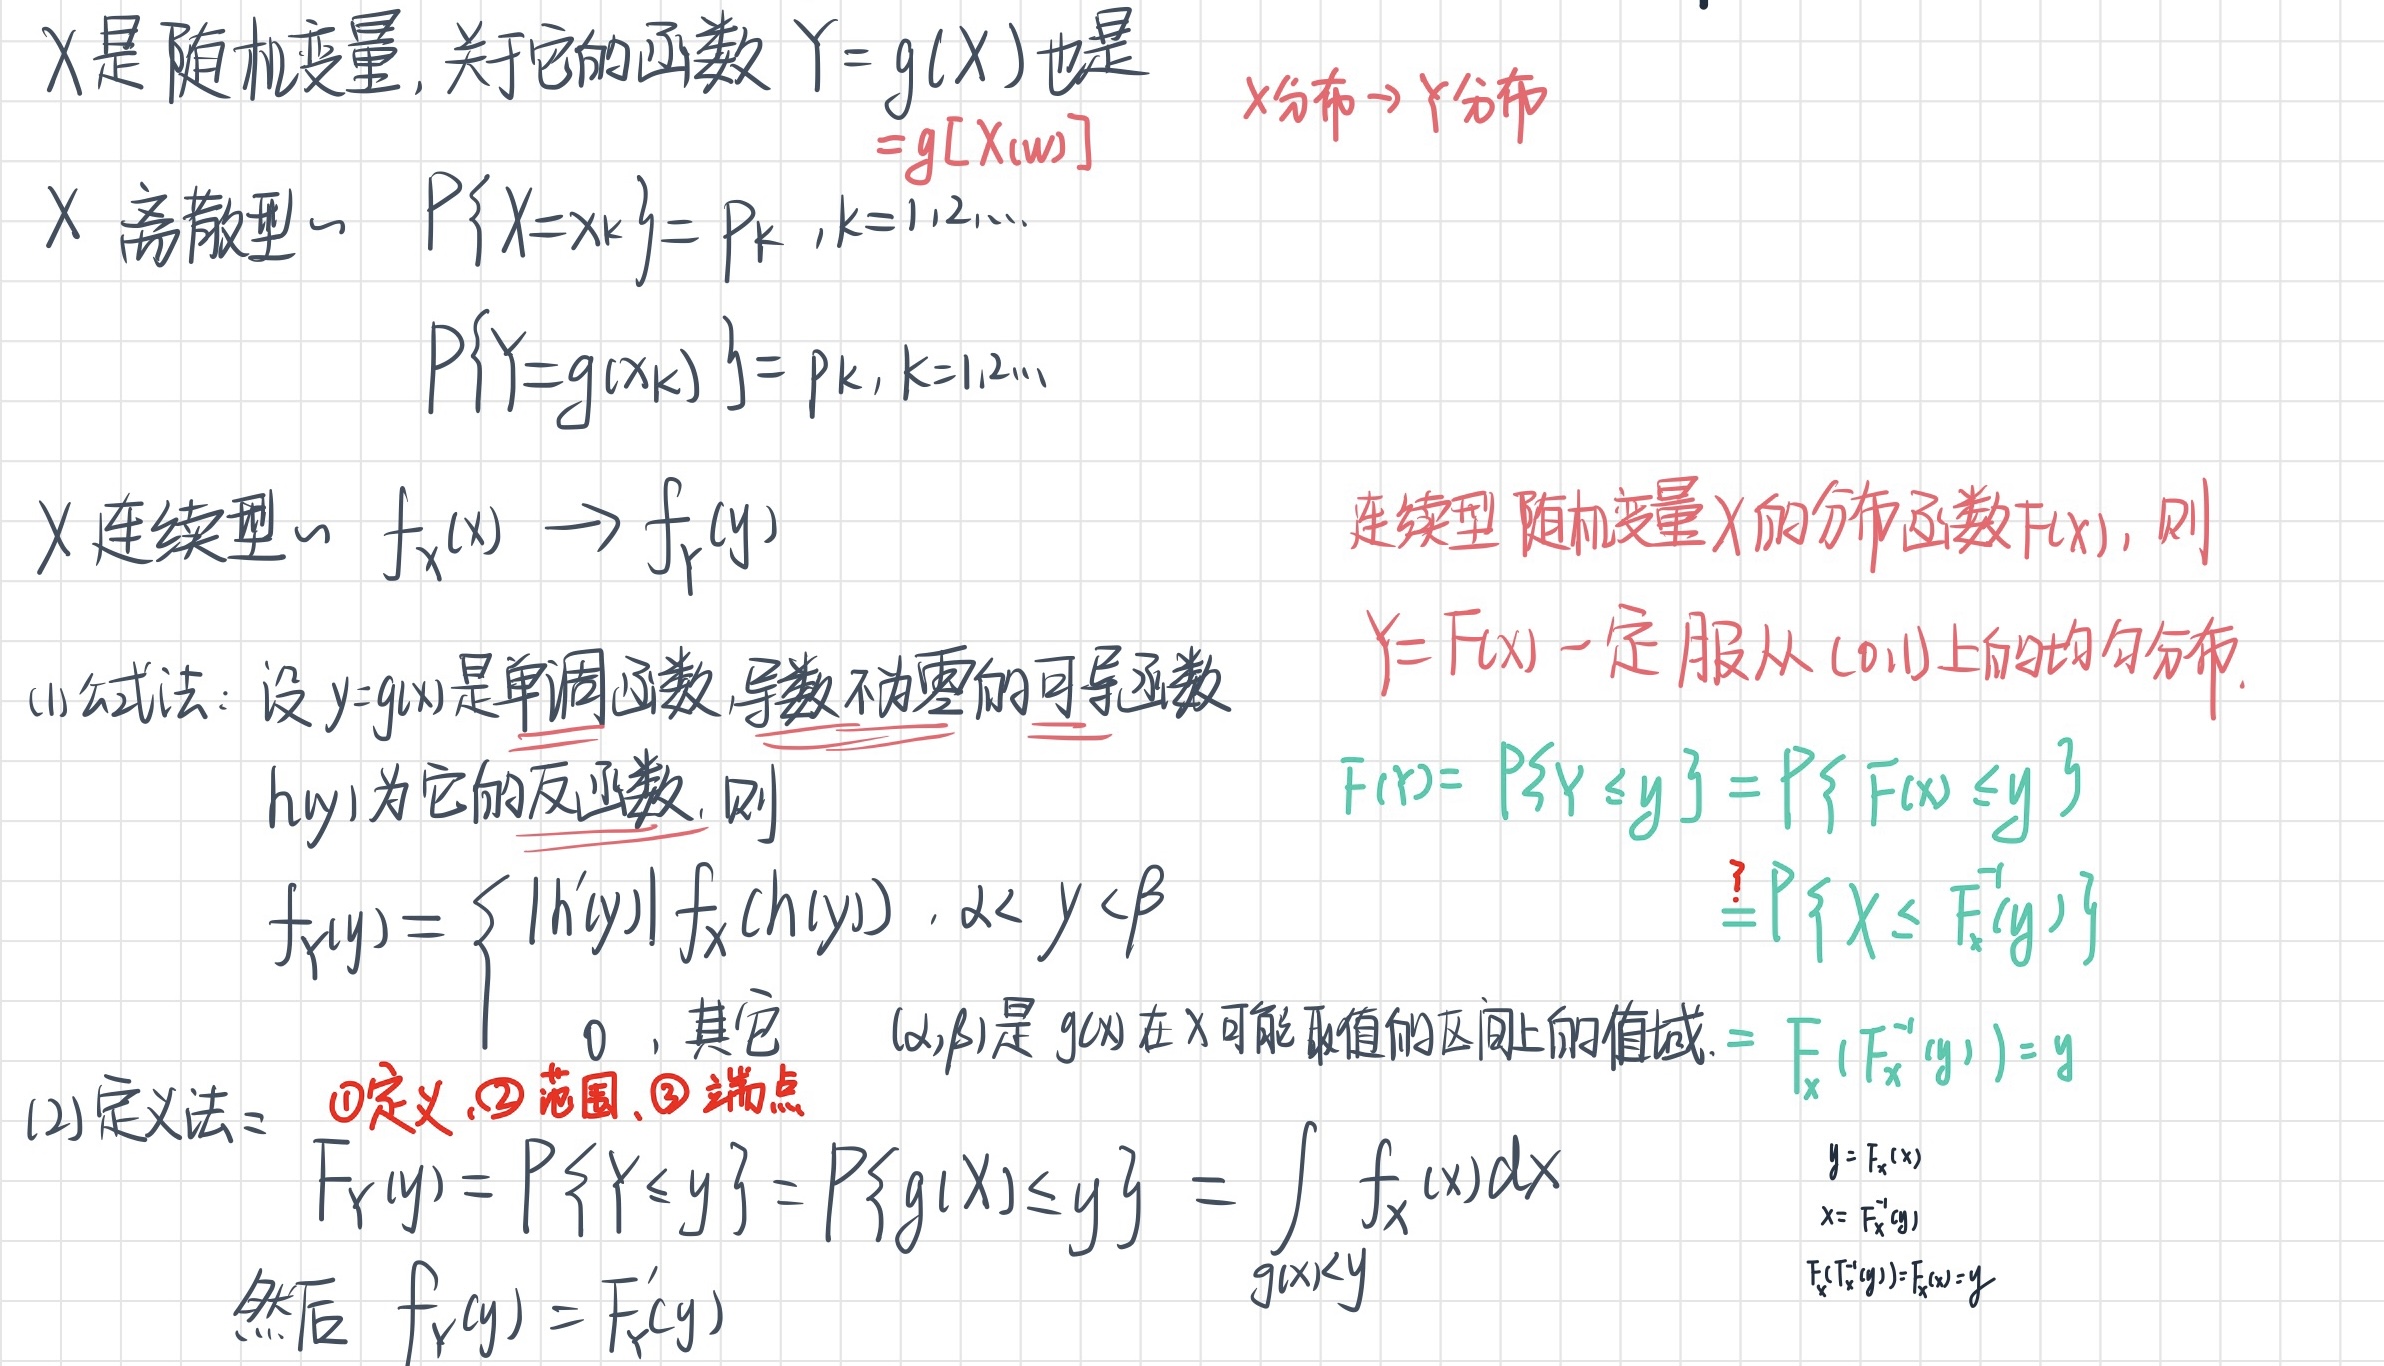 X是随机变量,关于它的函数 Y=g(X)也是
=g[X(w)]
X分布→Y分布
X 离散型~ P{X=xk}=pk ,k=1,2,...
P{Y=g(xk)}=pk, k=1,2...
X连续型~ fX(x) → fY(y)
(1)公式法: 设y=g(x)是单调函数,导数不为零的可导函数
h(y)为它的反函数,则
fY(y)= { |h'(y)| fX(h(y)) , α< y <β
0 , 其它 (α,β)是g(x)在X可能取值的区间上的值域.
(2)定义法= ①定义、②范围、③端点
FY(y)=P{Y≤y}=P{g(X)≤y} = ∫g(x)<y fX(x)dx
然后 fY(y)=F'Y(y)
连续型随机变量X的分布函数F(X),则
Y=F(X)一定服从(0,1)上的均匀分布.
F(Y)= P{Y≤y}=P{F(X)≤y}
?
=P{X≤ FX⁻¹(y)}
= FX(FX⁻¹(y))=y
y=FX(x)
x= FX⁻¹(y)
FX(FX⁻¹(y))=FX(x)=y